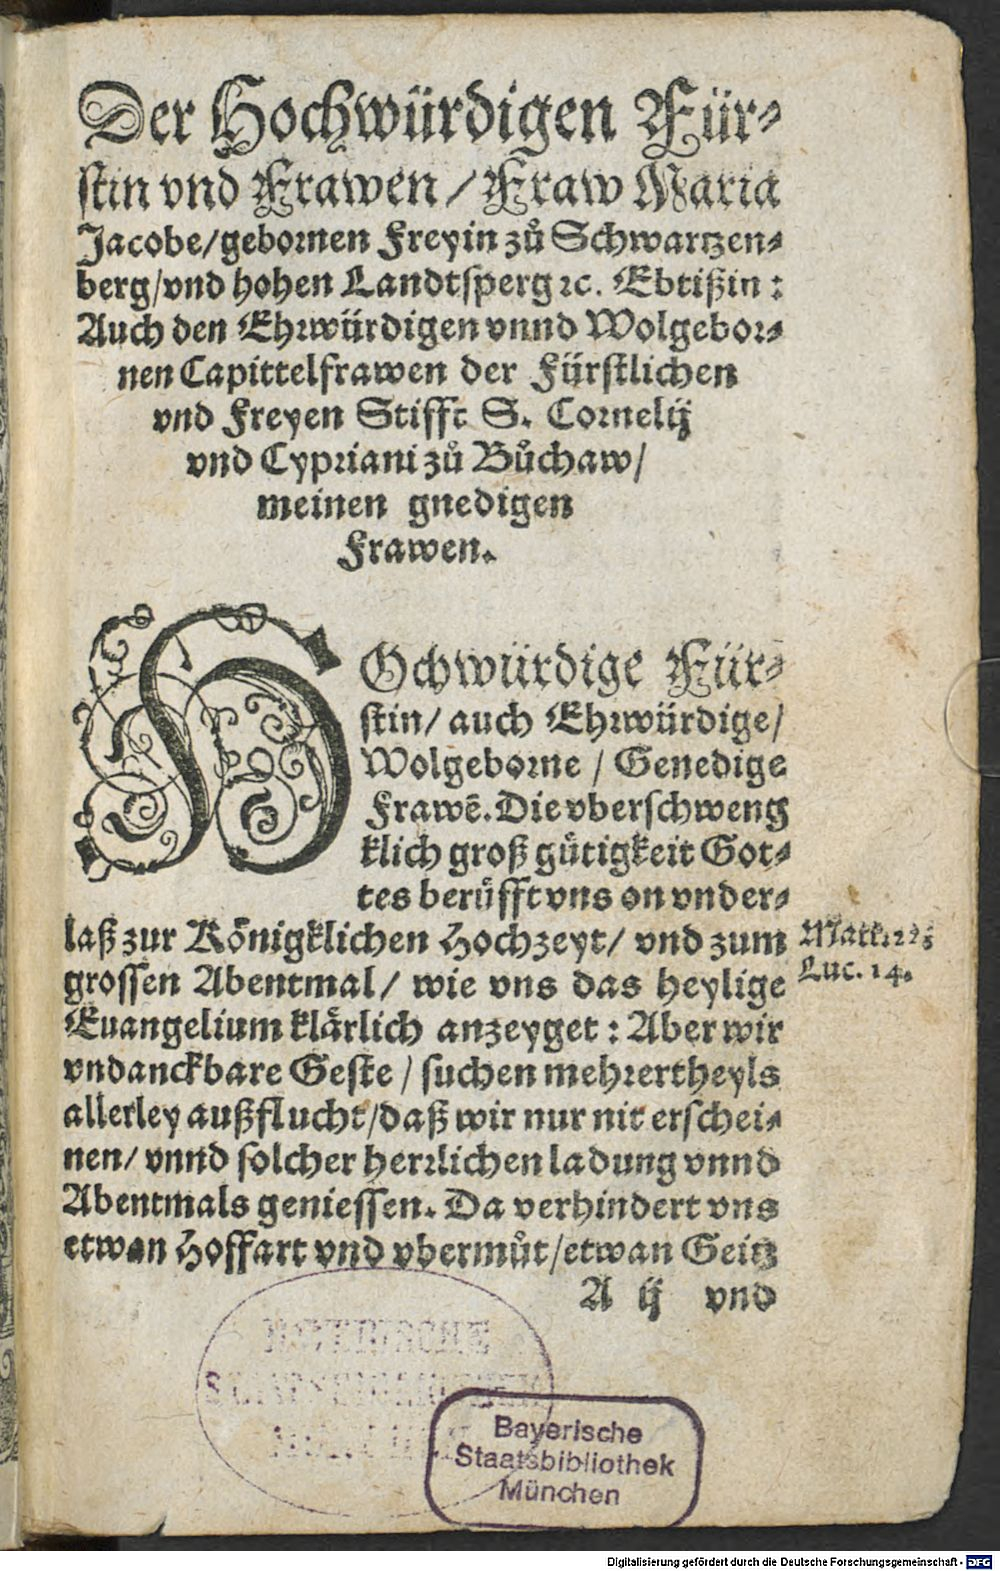 Der Hochwürdigen Für⸗
stin vnd Frawen / Fraw Maria
Jacobe / gebornen Freyin zuͦ Schwartzen⸗
berg / vnd hohen Landtsperg ꝛc. Ebtißin :
Auch den Ehrwürdigen vnnd Wolgebor⸗
nen Capittelfrawen der Fürstlichen
vnd Freyen Stifft S. Cornelij
vnd Cypriani zuͦ Buͦchaw /
meinen gnedigen
Frawen.
HOchwürdige Für⸗
stin / auch Ehrwürdige /
Wolgeborne / Genedige
Frawē. Die vberschweng
klich groß guͤtigkeit Got⸗
tes beruͤfft vns on vnder⸗
laß zur Königklichen Hochzeyt / vnd zum
grossen Abentmal / wie vns das heylige
Euangelium klärlich anzeyget : Aber wir
vndanckbare Geste / suchen mehrertheyls
allerley außflucht / daß wir nur nit erschei⸗
nen / vnnd solcher herrlichen ladung vnnd
Abentmals geniessen. Da verhindert vns
etwan Hoffart vnd vbermuͦt / etwan Geitz
A ij vnd
Matt. 22.
Luc. 14.
BAYERISCHE
STAATSBIBLIOTHEK
MÜNCHEN
Bayerische
Staatsbibliothek
München
Digitalisierung gefördert durch die Deutsche Forschungsgemeinschaft - DFG